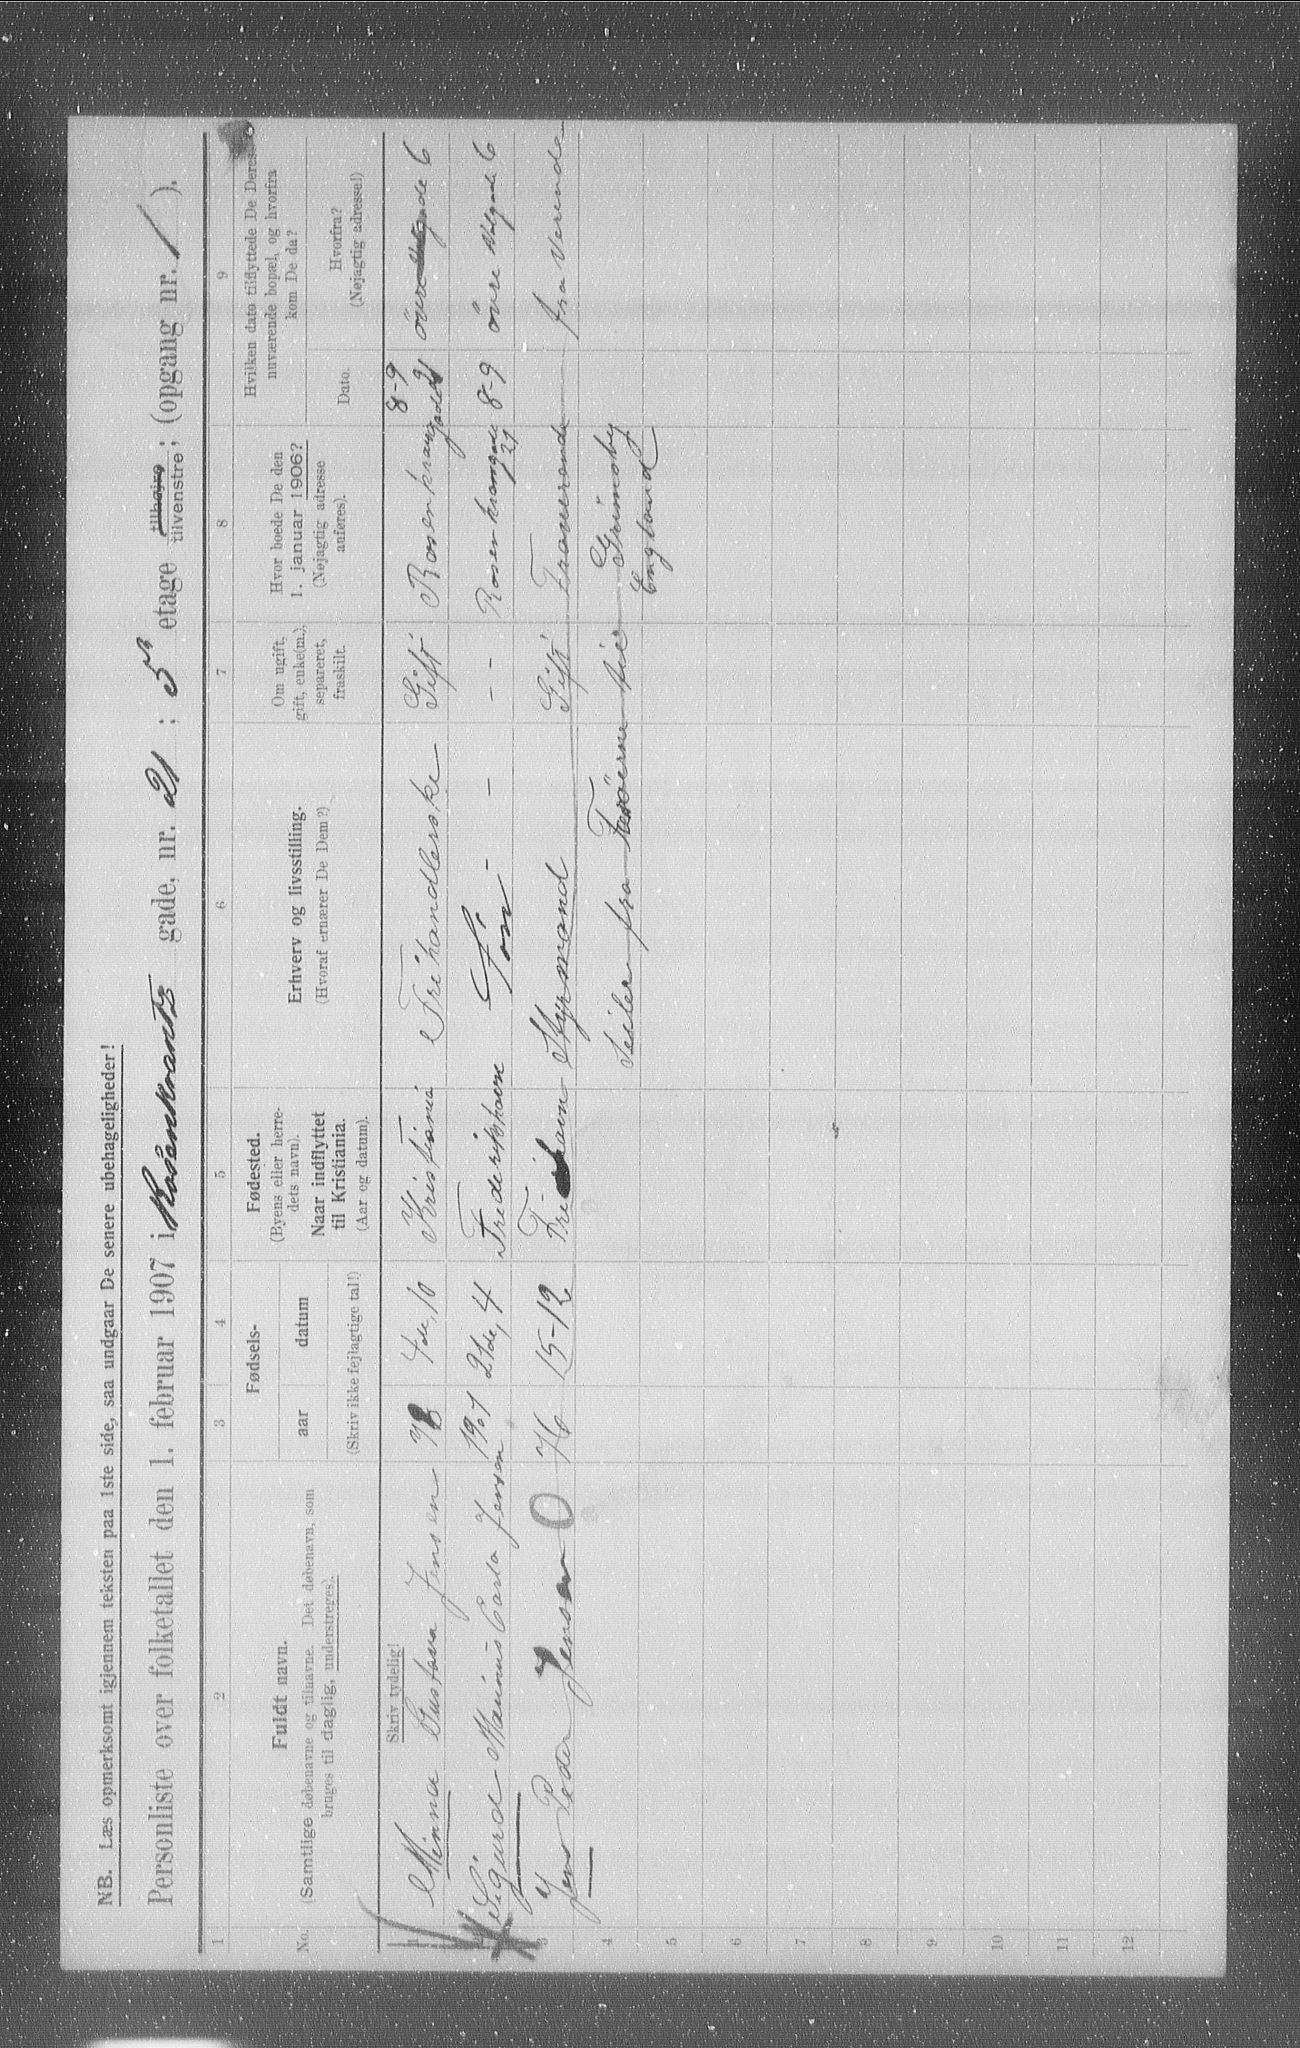 NB. Læs opmerksomt igjennem teksten paa 1ste side, saa undgaar De senere ubehageligheder!
Personliste over folketallet den 1. februar 1907 i Rosenkrantz gade, nr. 21 ; 5 etage tilhøjre tilvenstre ; (opgang nr. 1 ).
1 2 3 4 5 6 7 8 9
No.
Fuldt navn.
(Samtlige døbenavne og tilnavne. Det døbenavn, som
bruges til daglig, understreges).
Skriv tydelig!
Fødsels-
aar datum
(Skriv ikke fejlagtige tal!)
Fødested.
(Byens eller herre-
dets navn).
Naar indflyttet
til Kristiania.
(Aar og datum).
Erhverv og livsstilling.
(Hvoraf ernærer De Dem?)
Om ugift,
gift, enke(m.),
separeret,
fraskilt.
Hvor boede De den
1. januar 1906?
(Nøjagtig adresse
anføres).
Hvilken dato tilflyttede De Deres
nuværende bopæl, og hvorfra
kom De da?
Dato.
Hvorfra?
(Nøjagtig adressel)
1 Minna Gustava Jensen 78 4de, 10 Kristiania Frihandlerske Gift Rosenkrangade 21 8-9 övre gade 6
2 Sigurd Marinus Carlo Jensen 1901 21de, 4 Frederikshavn Sön - - - - Rosenkrangade 21 8-9 övre gade 6
3 Jens Peder Jensen 76 15-12 Styrmand Gift Fraverende fra Verende
4 Seiler fra Færöerne til Grimsby
England
5
6
7
8
9
10
11
12